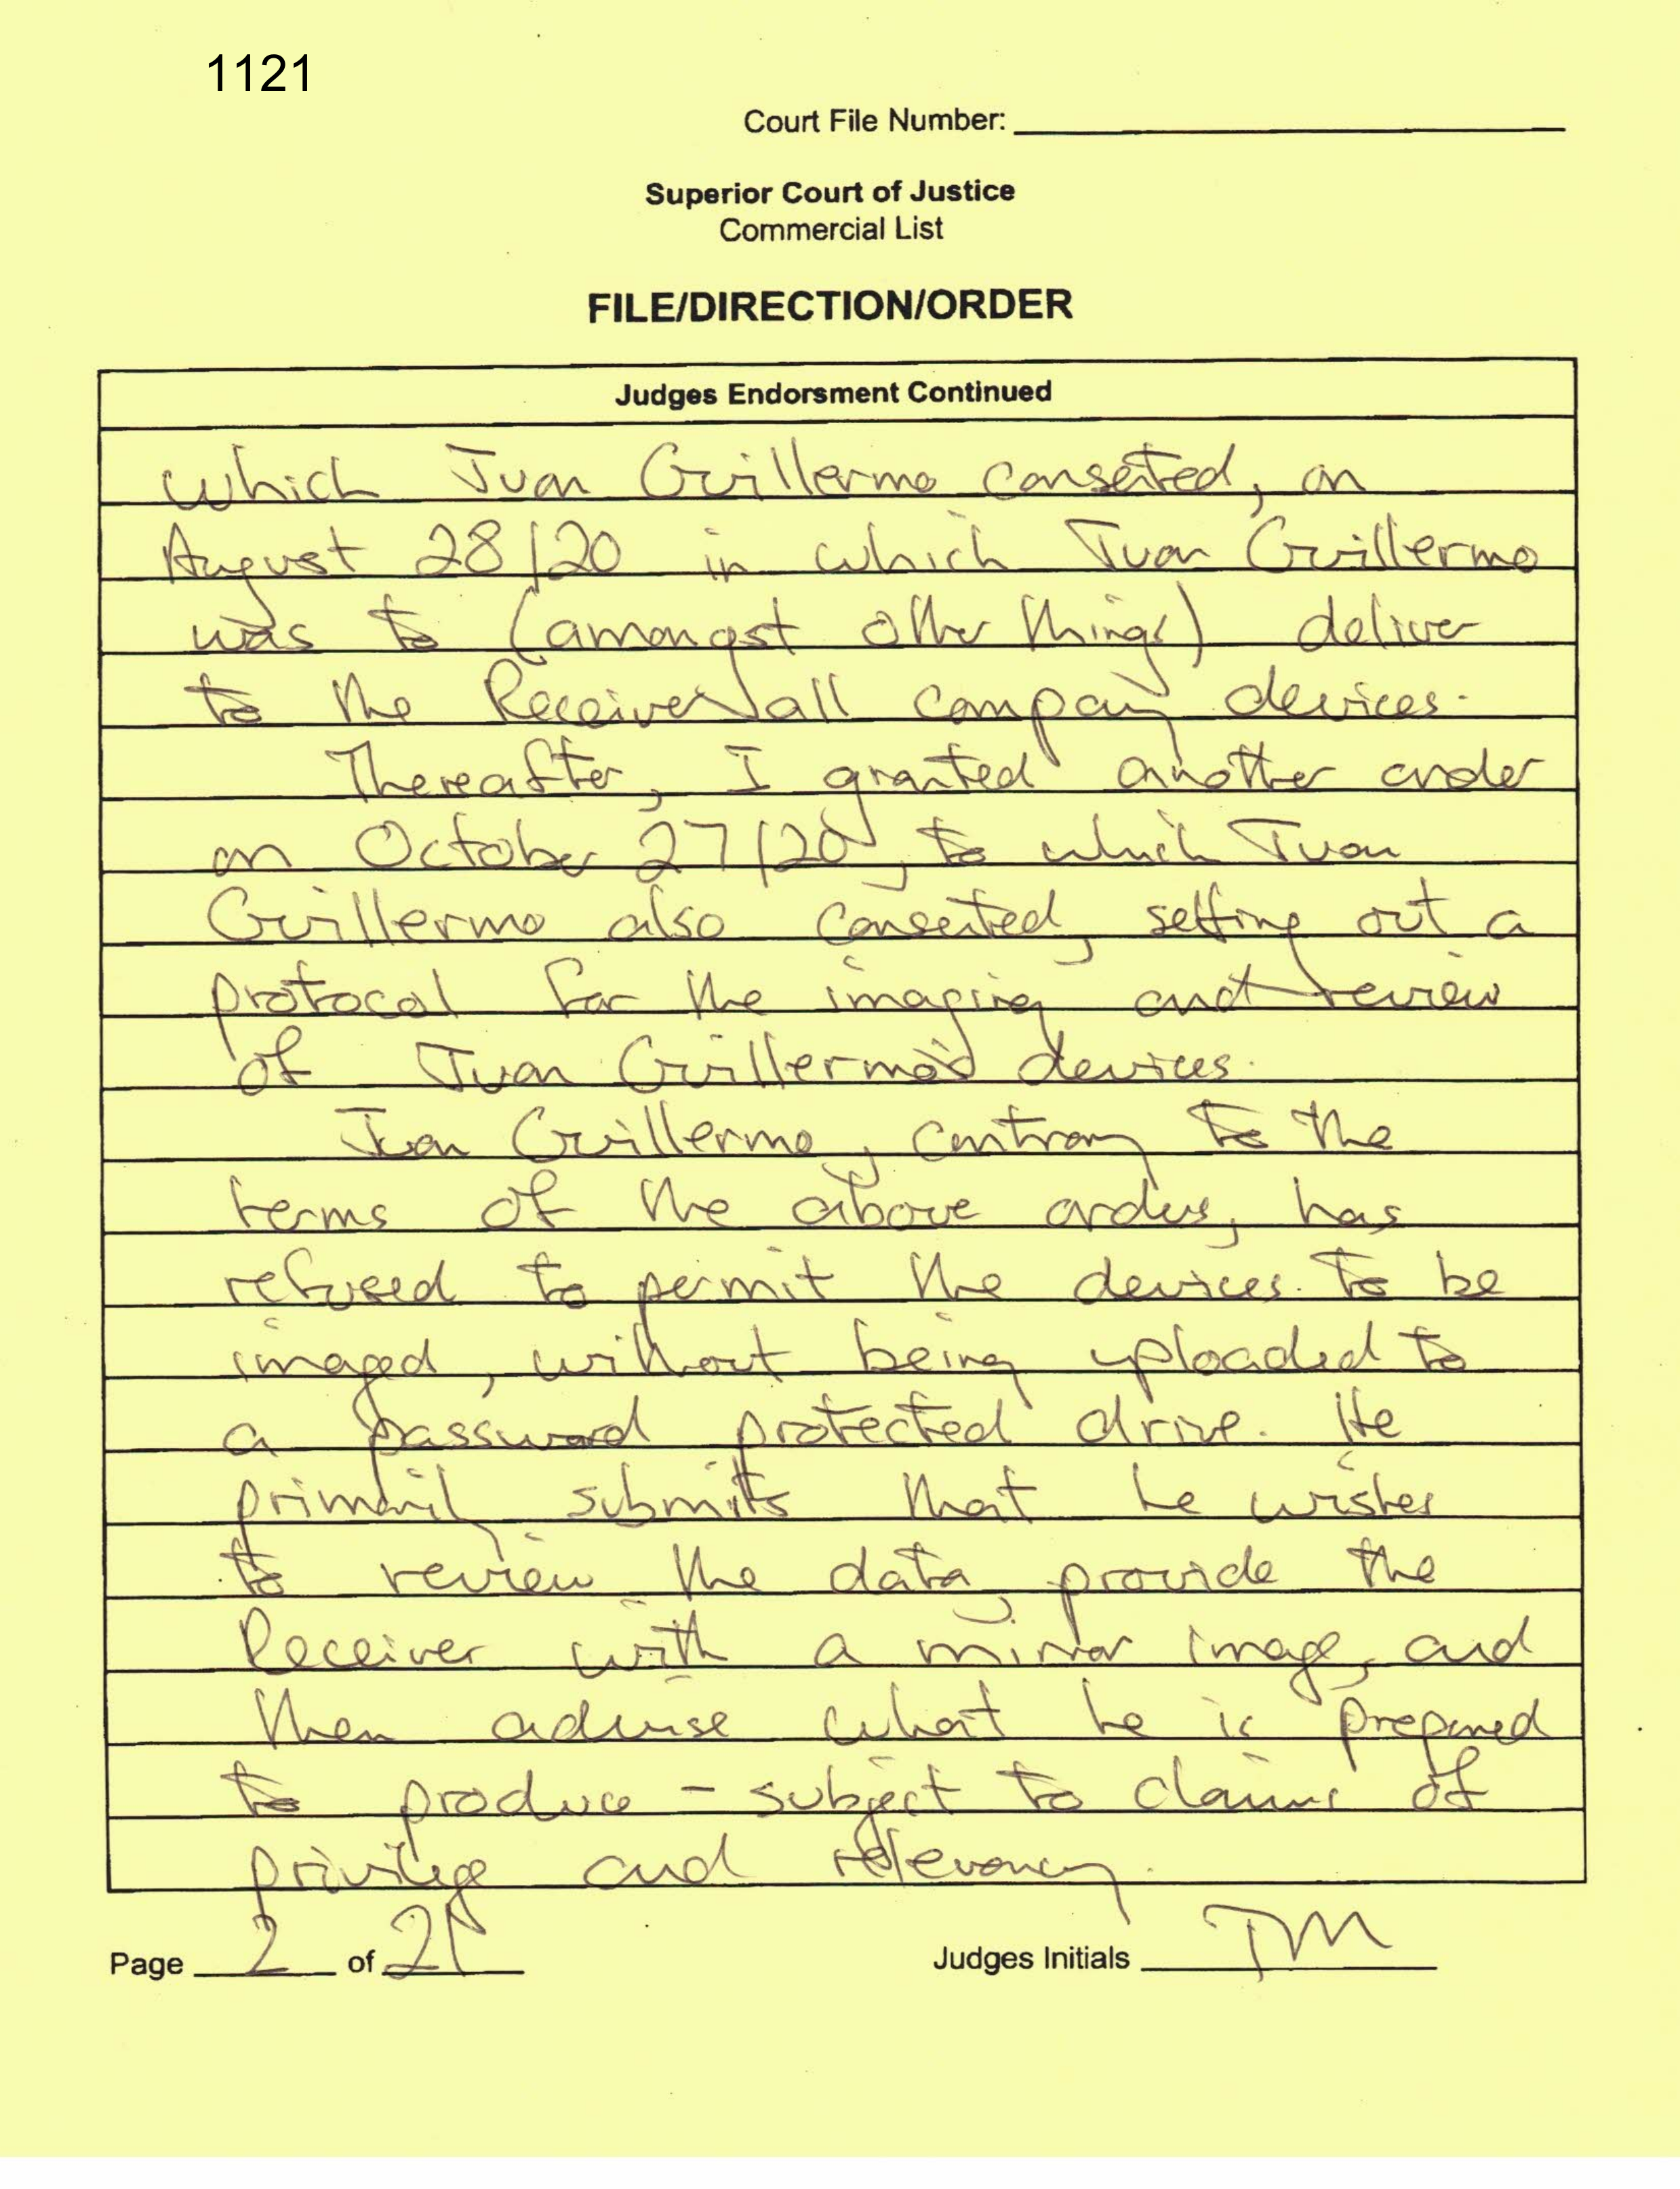 1121
Court File Number:
Superior Court of Justice
Commercial List
FILE/DIRECTION/ORDER
Judges Endorsment Continued
which Juan Guillermo consented, on
August 28/20 in which Juan Guillermo
was to (amongst other things) deliver
to the Receiver all company devices.
Thereafter, I granted another order
on October 27/20, to which Juan
Guillermo also consented, setting out a
protocol for the imaging and review
of Juan Guillermo's devices.
Juan Guillermo, contrary to the
terms of the above orders, has
refused to permit the devices to be
imaged, without being uploaded to
a password protected drive. He
primarily submits that he wishes
to review the data, provide the
Receiver with a mirror image, and
then advise what he is prepared
to produce - subject to claims of
privilege and relevancy.
Page 2 of
Judges Initials TM